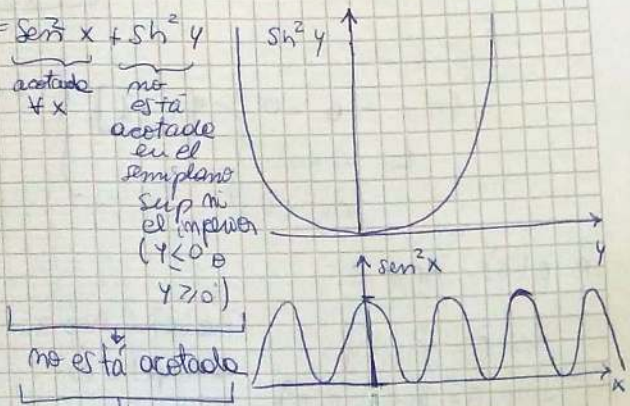 = sen² x + Sh² y
acotada
∀ x
no
está
acotada
en el
semiplano
sup ni
el inferior
(y ≤ 0 o
y ≥ 0)
no está acotada
Sh² y
y
sen² x
x